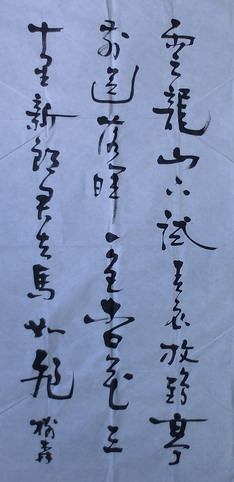 雲龍山下試春衣放鶴亭
前送落暉一色杏花三
十里新郎君去馬如飛